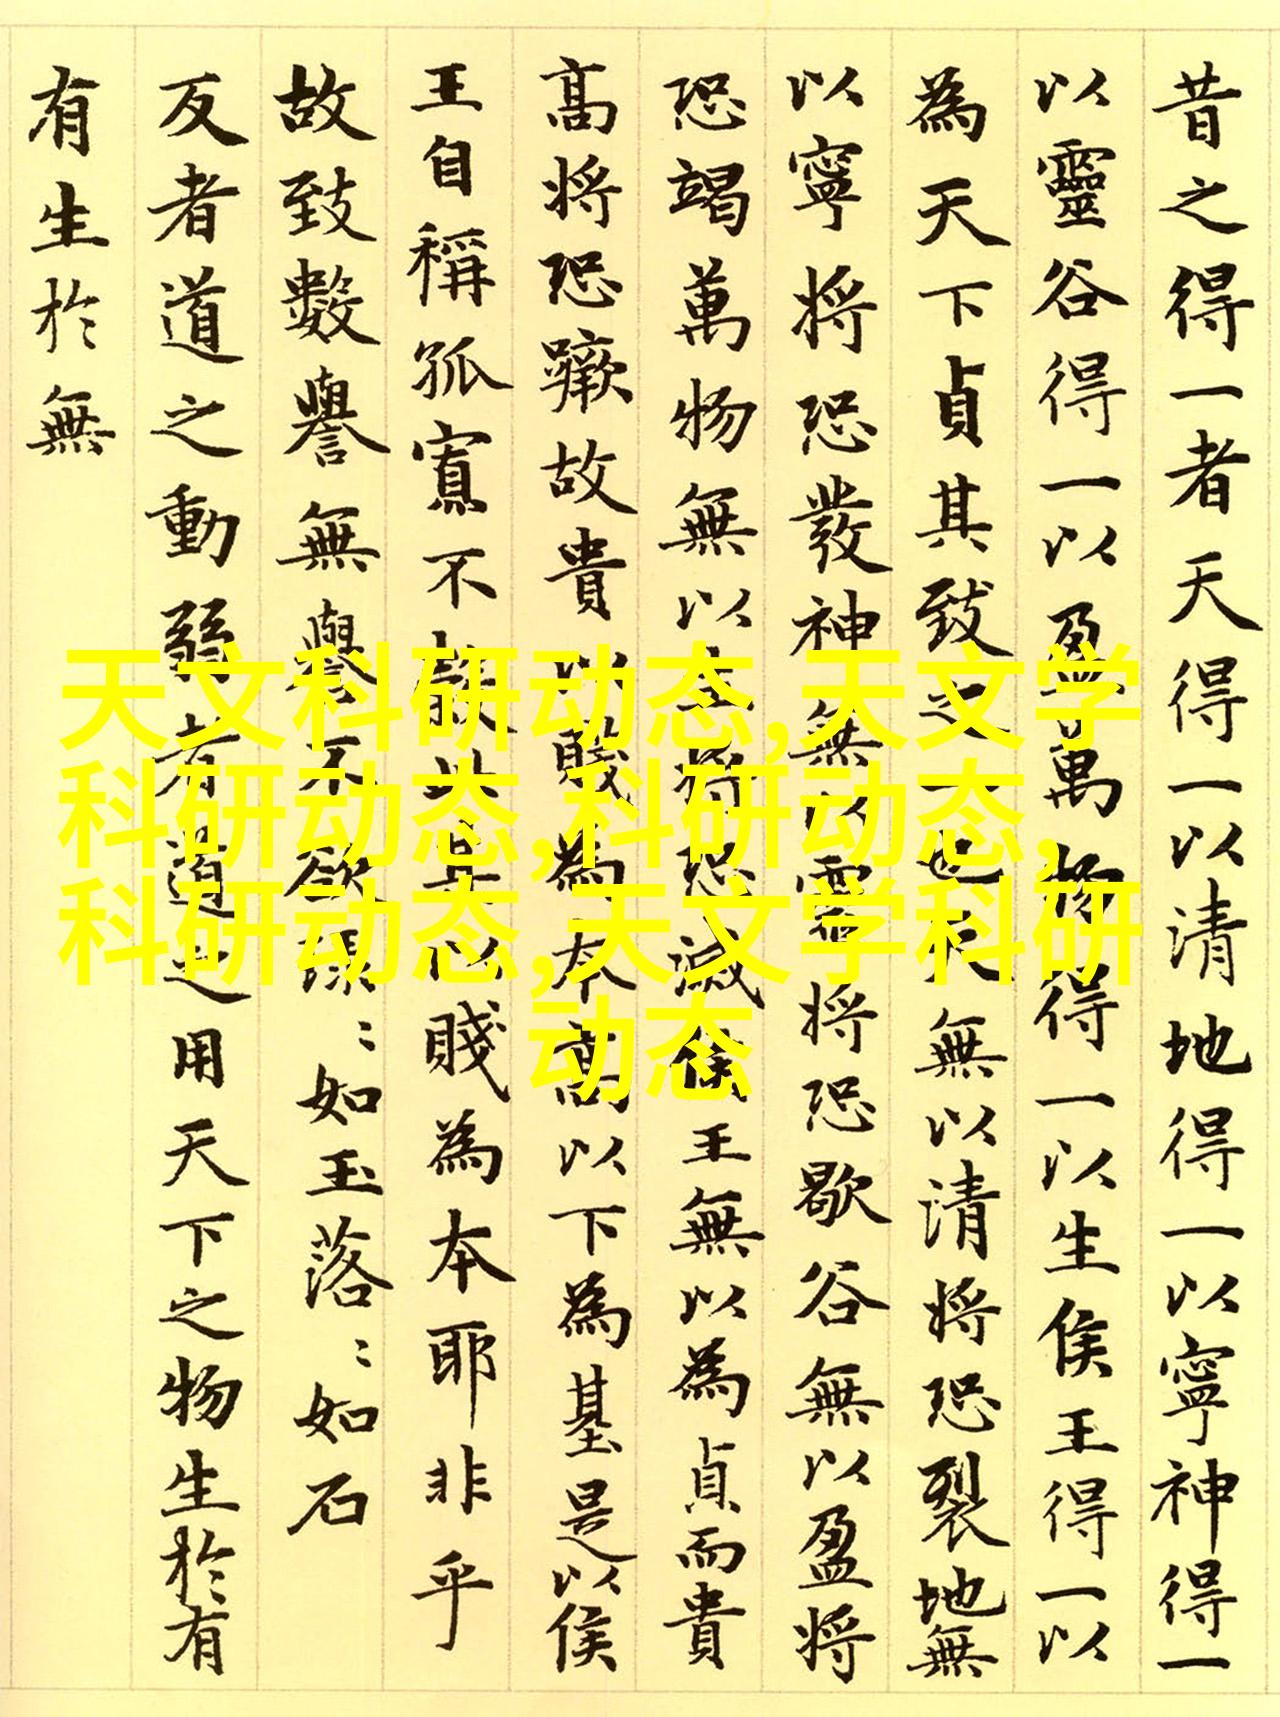 昔之得一者天得一以清地得一以寧神得一
以靈谷得一以盈萬物得一以生侯王得一以
為天下貞其致之一也天無以清將恐裂地無
以寧將恐發神無以靈將恐歇谷無以盈將
恐竭萬物無以生將恐滅侯王無以為貞而貴
高將恐蹶故貴以賤為本高以下為基是以侯
王自稱孤寡不穀此其以賤為本耶非乎
故致數譽無譽不欲琭〻如玉落〻如石
反者道之動弱者道之用天下之物生於有
有生於無
天文科研动态,天文学
科研动态,科研动态,
科研动态,天文学科研
动态